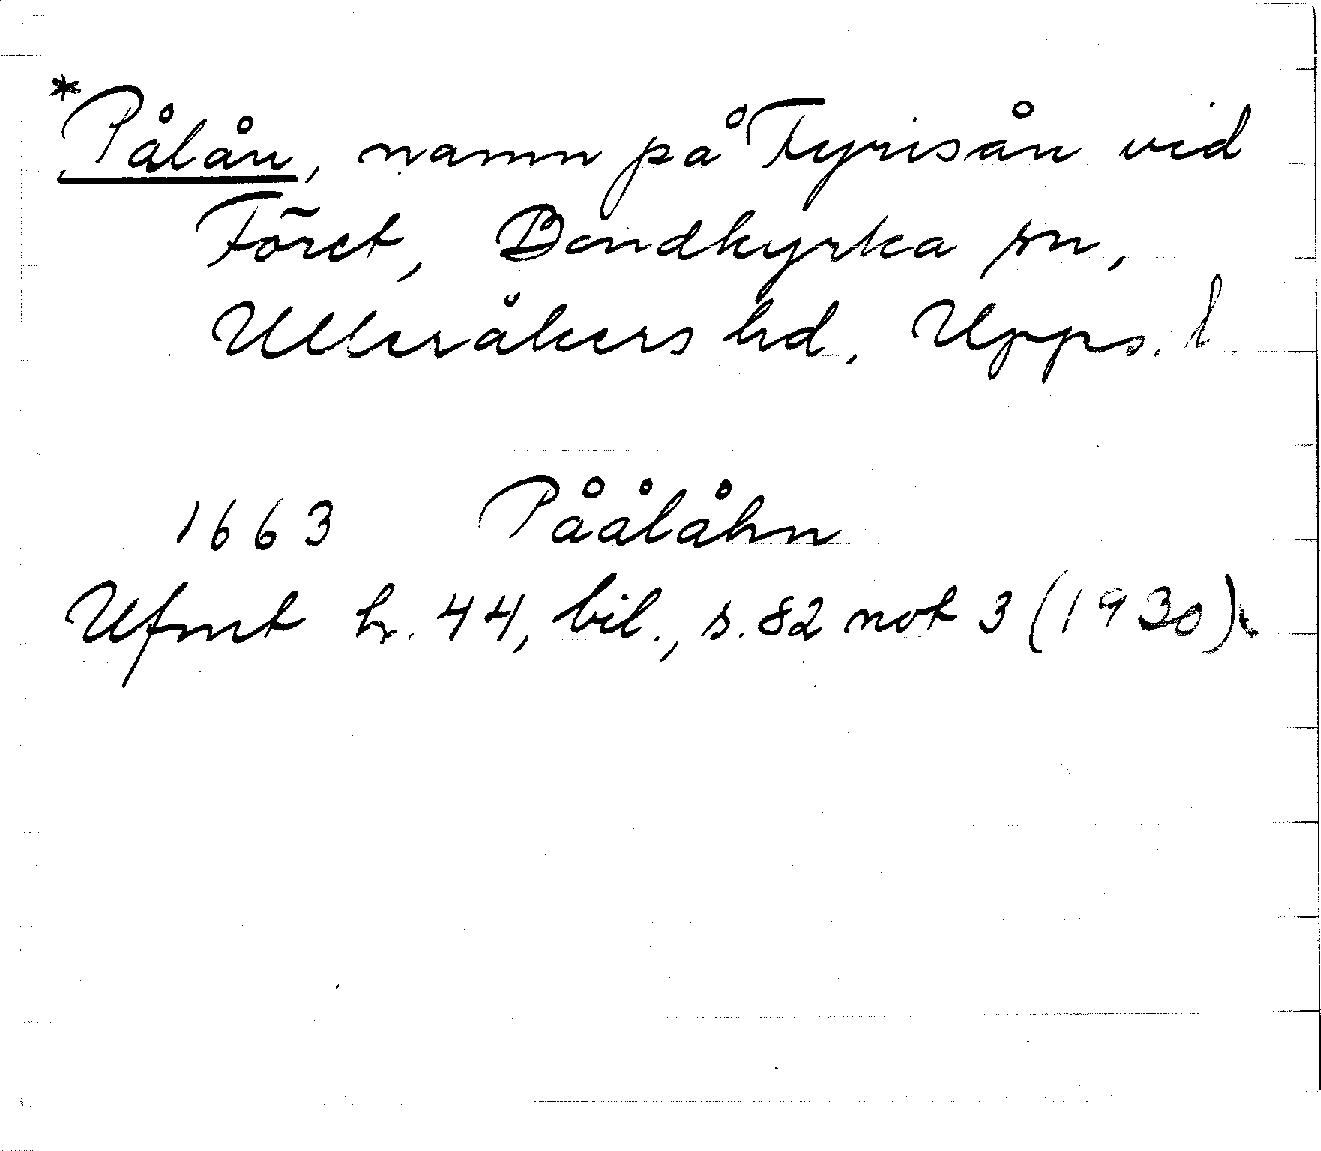 *Pålån, namn på Fyrisån vid
Föret, Bondkyrka sn,
Ulleråkers hd, Upps. l
1663 Påålåhn
Ufmt h. 44, bil., s. 82 not 3 (1930).